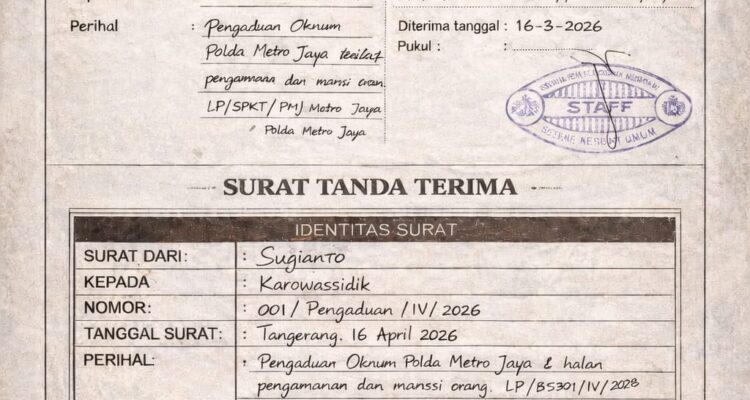 Perihal : Pengaduan Oknum
Polda Metro Jaya
dan mansi
LP/SPKT/PMJ Motoro Jaya
Polda Metro Jaya
Diterima tanggal : 16-3-2026
Pukul :
STAFF
UMUM
SURAT TANDA TERIMA
IDENTITAS SURAT
SURAT DARI: : Sugianto
KEPADA : Karowassidik
NOMOR: : 001/Pengaduan/IV/2026
TANGGAL SURAT: : Tangerang. 16 April 2026
PERIHAL: : Pengaduan Oknum Polda Metro Jaya & halan
pengamanan dan manssi orang. LP/B5301/IV/2028